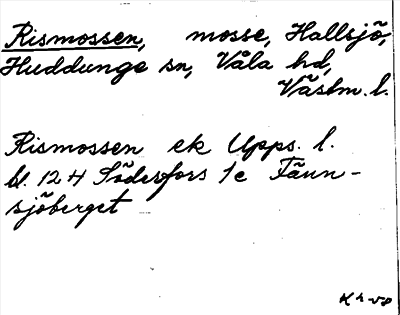 Rismossen, mosse, Hallsjö,
Huddunge sn, Våla hd,
Västm. l.
Rismossen ek Upps. l.
bl. 12 H Söderfors 1e Täun-
sjöberget